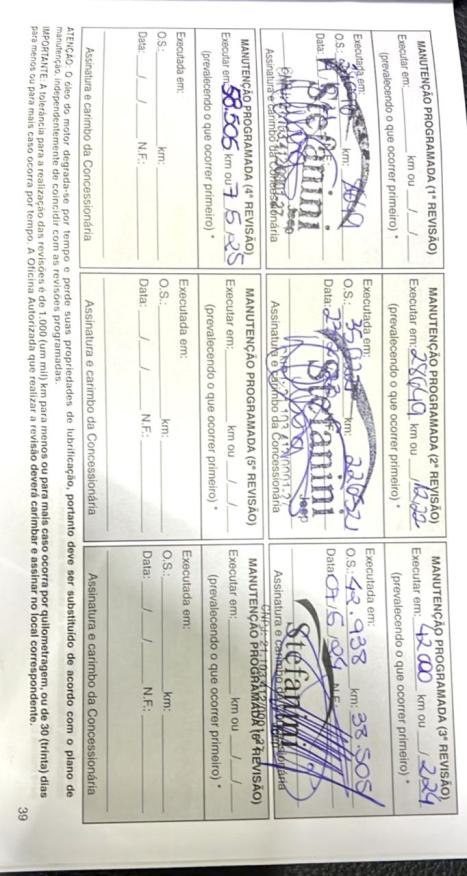 MANUTENÇÃO PROGRAMADA (1ª REVISÃO)
Executar em: km ou / /
(prevalecendo o que ocorrer primeiro) *
Executada em:
O.S.: km:
Data:
Stefanini
Jeep
Assinatura e carimbo da Concessionária
MANUTENÇÃO PROGRAMADA (2ª REVISÃO)
Executar em: 28649 km ou / 12 22
(prevalecendo o que ocorrer primeiro) *
Executada em:
O.S.: km: 22052
Data:
Stefanini
Jeep
Assinatura e carimbo da Concessionária
MANUTENÇÃO PROGRAMADA (3ª REVISÃO)
Executar em: 42000 km ou / 2 24
(prevalecendo o que ocorrer primeiro) *
Executada em:
O.S.: 42.938 km: 38.505
Data: 07/5/24 N.F.:
Stefanini
Assinatura e carimbo da Concessionária
MANUTENÇÃO PROGRAMADA (4ª REVISÃO)
Executar em: 58.505 km ou 7 5 25
(prevalecendo o que ocorrer primeiro) *
Executada em:
O.S.: km:
Data: / / N.F.:
Assinatura e carimbo da Concessionária
MANUTENÇÃO PROGRAMADA (5ª REVISÃO)
Executar em: km ou / /
(prevalecendo o que ocorrer primeiro) *
Executada em:
O.S.: km:
Data: / / N.F.:
Assinatura e carimbo da Concessionária
MANUTENÇÃO PROGRAMADA (6ª REVISÃO)
Executar em: km ou / /
(prevalecendo o que ocorrer primeiro) *
Executada em:
O.S.: km:
Data: / / N.F.:
Assinatura e carimbo da Concessionária
ATENÇÃO: O óleo do motor degrada-se por tempo e perde suas propriedades de lubrificação, portanto deve ser substituído de acordo com o plano de
manutenção, independentemente de coincidir com as revisões programadas.
IMPORTANTE: A tolerância para a realização das revisões é de 1.000 (um mil) km para menos ou para mais caso ocorra por quilometragem, ou de 30 (trinta) dias
para menos ou para mais caso ocorra por tempo. A Oficina Autorizada que realizar a revisão deverá carimbar e assinar no local correspondente.
39